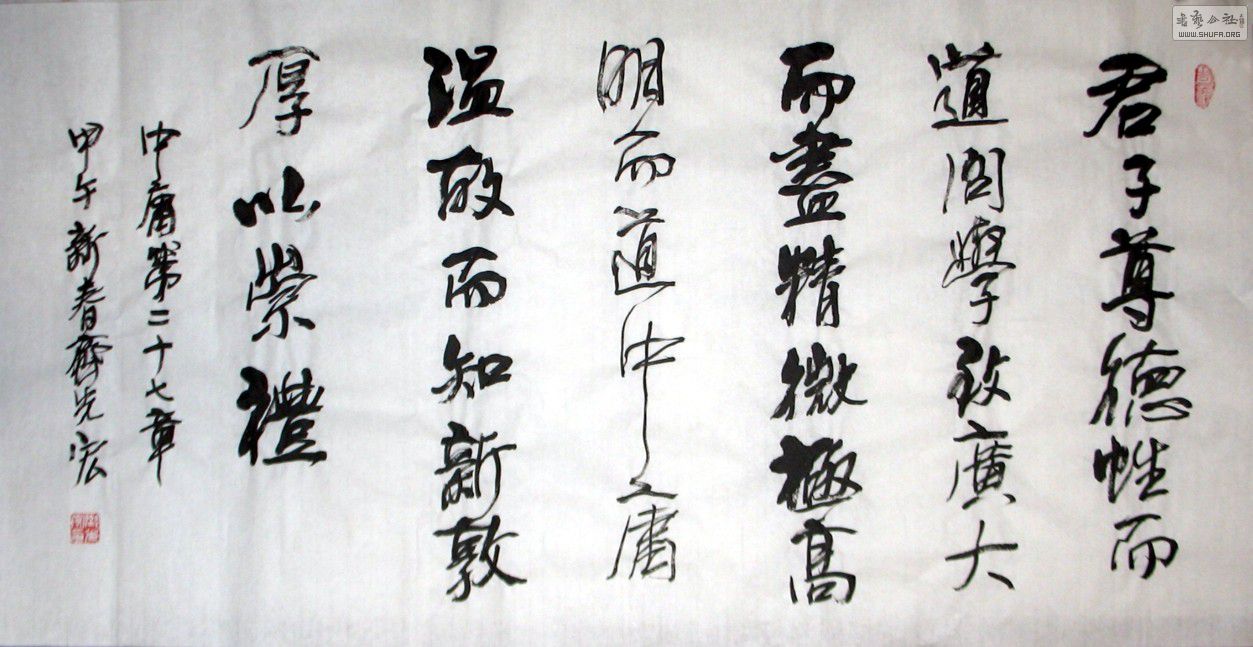 君子尊德性而
道問學致廣大
而盡精微極高
明而道中庸
溫故而知新敦
厚以崇禮
中庸第二十七章
甲午新春齊光宏
書藝公社
WWW.SHUFA.ORG